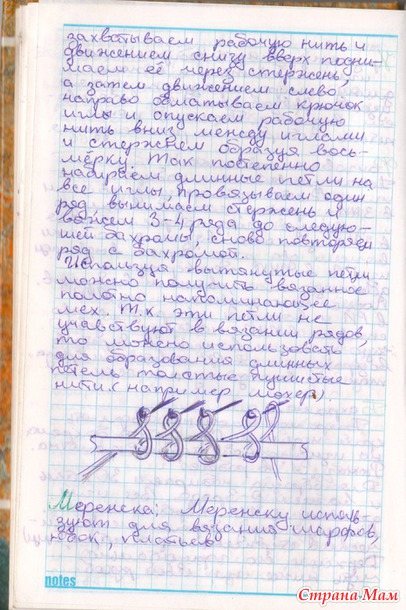 захватываем рабочую нить и
движением снизу вверх подни-
маем её через стержень,
а затем движением слево
направо обматываем крючок
иглы и опускаем рабочую
нить вниз между иглами
и стержнем образуя вось-
мёрку. Так постепенно
набираем длинные петли на
все иглы, провязываем один
ряд вынимаем стержень и
вяжем 3-4 ряда до следую-
щей бахромы, снова повторяем
ряд с бахромой.
Используя вытянутые петли
можно получить вязанное
полотно напоминающее
мех. Т.к. эти петли не
учавствуют в вязании рядов,
то можно использовать
для образования длинных
петель толстые пушистые
нити (например мохер)
Мережка: Мережку исполь-
зуют для вязания шарфов,
юбок, платьев
notes
Страна Мам